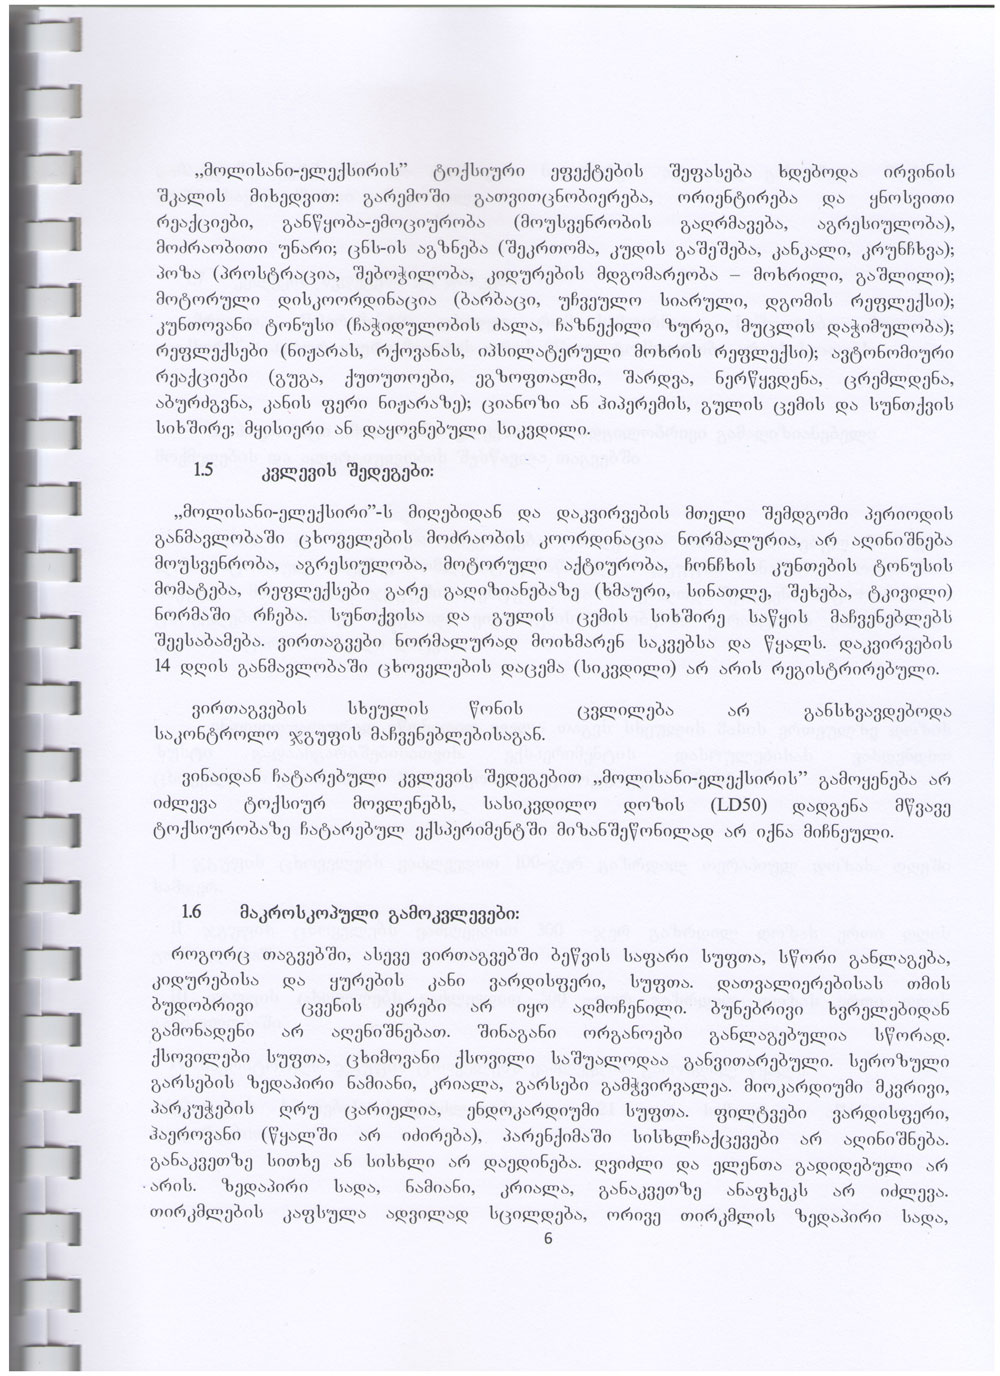 „მოლისანი-ელექსირის” ტოქსიური ეფექტების შეფასება ხდებოდა ირვინის
შკალის მიხედვით: გარემოში გათვითცნობიერება, ორიენტირება და ყნოსვითი
რეაქციები, განწყობა-ემოციურობა (მოუსვენრობის გაღრმავება, აგრესიულობა),
მოძრაობითი უნარი; ცნს-ის აგზნება (შეკრთომა, კუდის გაშეშება, კანკალი, კრუნჩხვა);
პოზა (პროსტრაცია, შებოჭილობა, კიდურების მდგომარეობა – მოხრილი, გაშლილი);
მოტორული დისკოორდინაცია (ბარბაცი, უჩვეულო სიარული, დგომის რეფლექსი);
კუნთოვანი ტონუსი (ჩაჭიდულობის ძალა, ჩაზნექილი ზურგი, მუცლის დაჭიმულობა);
რეფლექსები (ნიჟარას, რქოვანას, იპსილატერული მოხრის რეფლექსი); ავტონომიური
რეაქციები (გუგა, ქუთუთოები, ეგზოფთალმი, შარდვა, ნერწყვდენა, ცრემლდენა,
აბურძგვნა, კანის ფერი ნიჟარაზე); ციანოზი ან ჰიპერემის, გულის ცემის და სუნთქვის
სიხშირე; მყისიერი ან დაყოვნებული სიკვდილი.
1.5 კვლევის შედეგები:
„მოლისანი-ელექსირი”-ს მიღებიდან და დაკვირვების მთელი შემდგომი პერიოდის
განმავლობაში ცხოველების მოძრაობის კოორდინაცია ნორმალურია, არ აღინიშნება
მოუსვენრობა, აგრესიულობა, მოტორული აქტიურობა, ჩონჩხის კუნთების ტონუსის
მომატება, რეფლექსები გარე გაღიზიანებაზე (ხმაური, სინათლე, შეხება, ტკივილი)
ნორმაში რჩება. სუნთქვისა და გულის ცემის სიხშირე საწყის მაჩვენებლებს
შეესაბამება. ვირთაგვები ნორმალურად მოიხმარენ საკვებსა და წყალს. დაკვირვების
14 დღის განმავლობაში ცხოველების დაცემა (სიკვდილი) არ არის რეგისტრირებული.
ვირთაგვების სხეულის წონის ცვლილება არ განსხვავდებოდა
საკონტროლო ჯგუფის მაჩვენებლებისაგან.
ვინაიდან ჩატარებული კვლევის შედეგებით „მოლისანი-ელექსირის” გამოყენება არ
იძლევა ტოქსიურ მოვლენებს, სასიკვდილო დოზის (LD50) დადგენა მწვავე
ტოქსიურობაზე ჩატარებულ ექსპერიმენტში მიზანშეწონილად არ იქნა მიჩნეული.
1.6 მაკროსკოპული გამოკვლევები:
როგორც თაგვებში, ასევე ვირთაგვებში ბეწვის საფარი სუფთა, სწორი განლაგება,
კიდურებისა და ყურების კანი ვარდისფერი, სუფთა. დათვალიერებისას თმის
ბუდობრივი ცვენის კერები არ იყო აღმოჩენილი. ბუნებრივი ხვრელებიდან
გამონადენი არ აღენიშნებათ. შინაგანი ორგანოები განლაგებულია სწორად.
ქსოვილები სუფთა, ცხიმოვანი ქსოვილი საშუალოდაა განვითარებული. სეროზული
გარსების ზედაპირი ნამიანი, კრიალა, გარსები გამჭვირვალეა. მიოკარდიუმი მკვრივი,
პარკუჭების ღრუ ცარიელია, ენდოკარდიუმი სუფთა. ფილტვები ვარდისფერი,
ჰაეროვანი (წყალში არ იძირება), პარენქიმაში სისხლჩაქცევები არ აღინიშნება.
განაკვეთზე სითხე ან სისხლი არ დაედინება. ღვიძლი და ელენთა გადიდებული არ
არის. ზედაპირი სადა, ნამიანი, კრიალა, განაკვეთზე ანაფხეკს არ იძლევა.
თირკმლების კაფსულა ადვილად სცილდება, ორივე თირკმლის ზედაპირი სადა,
6